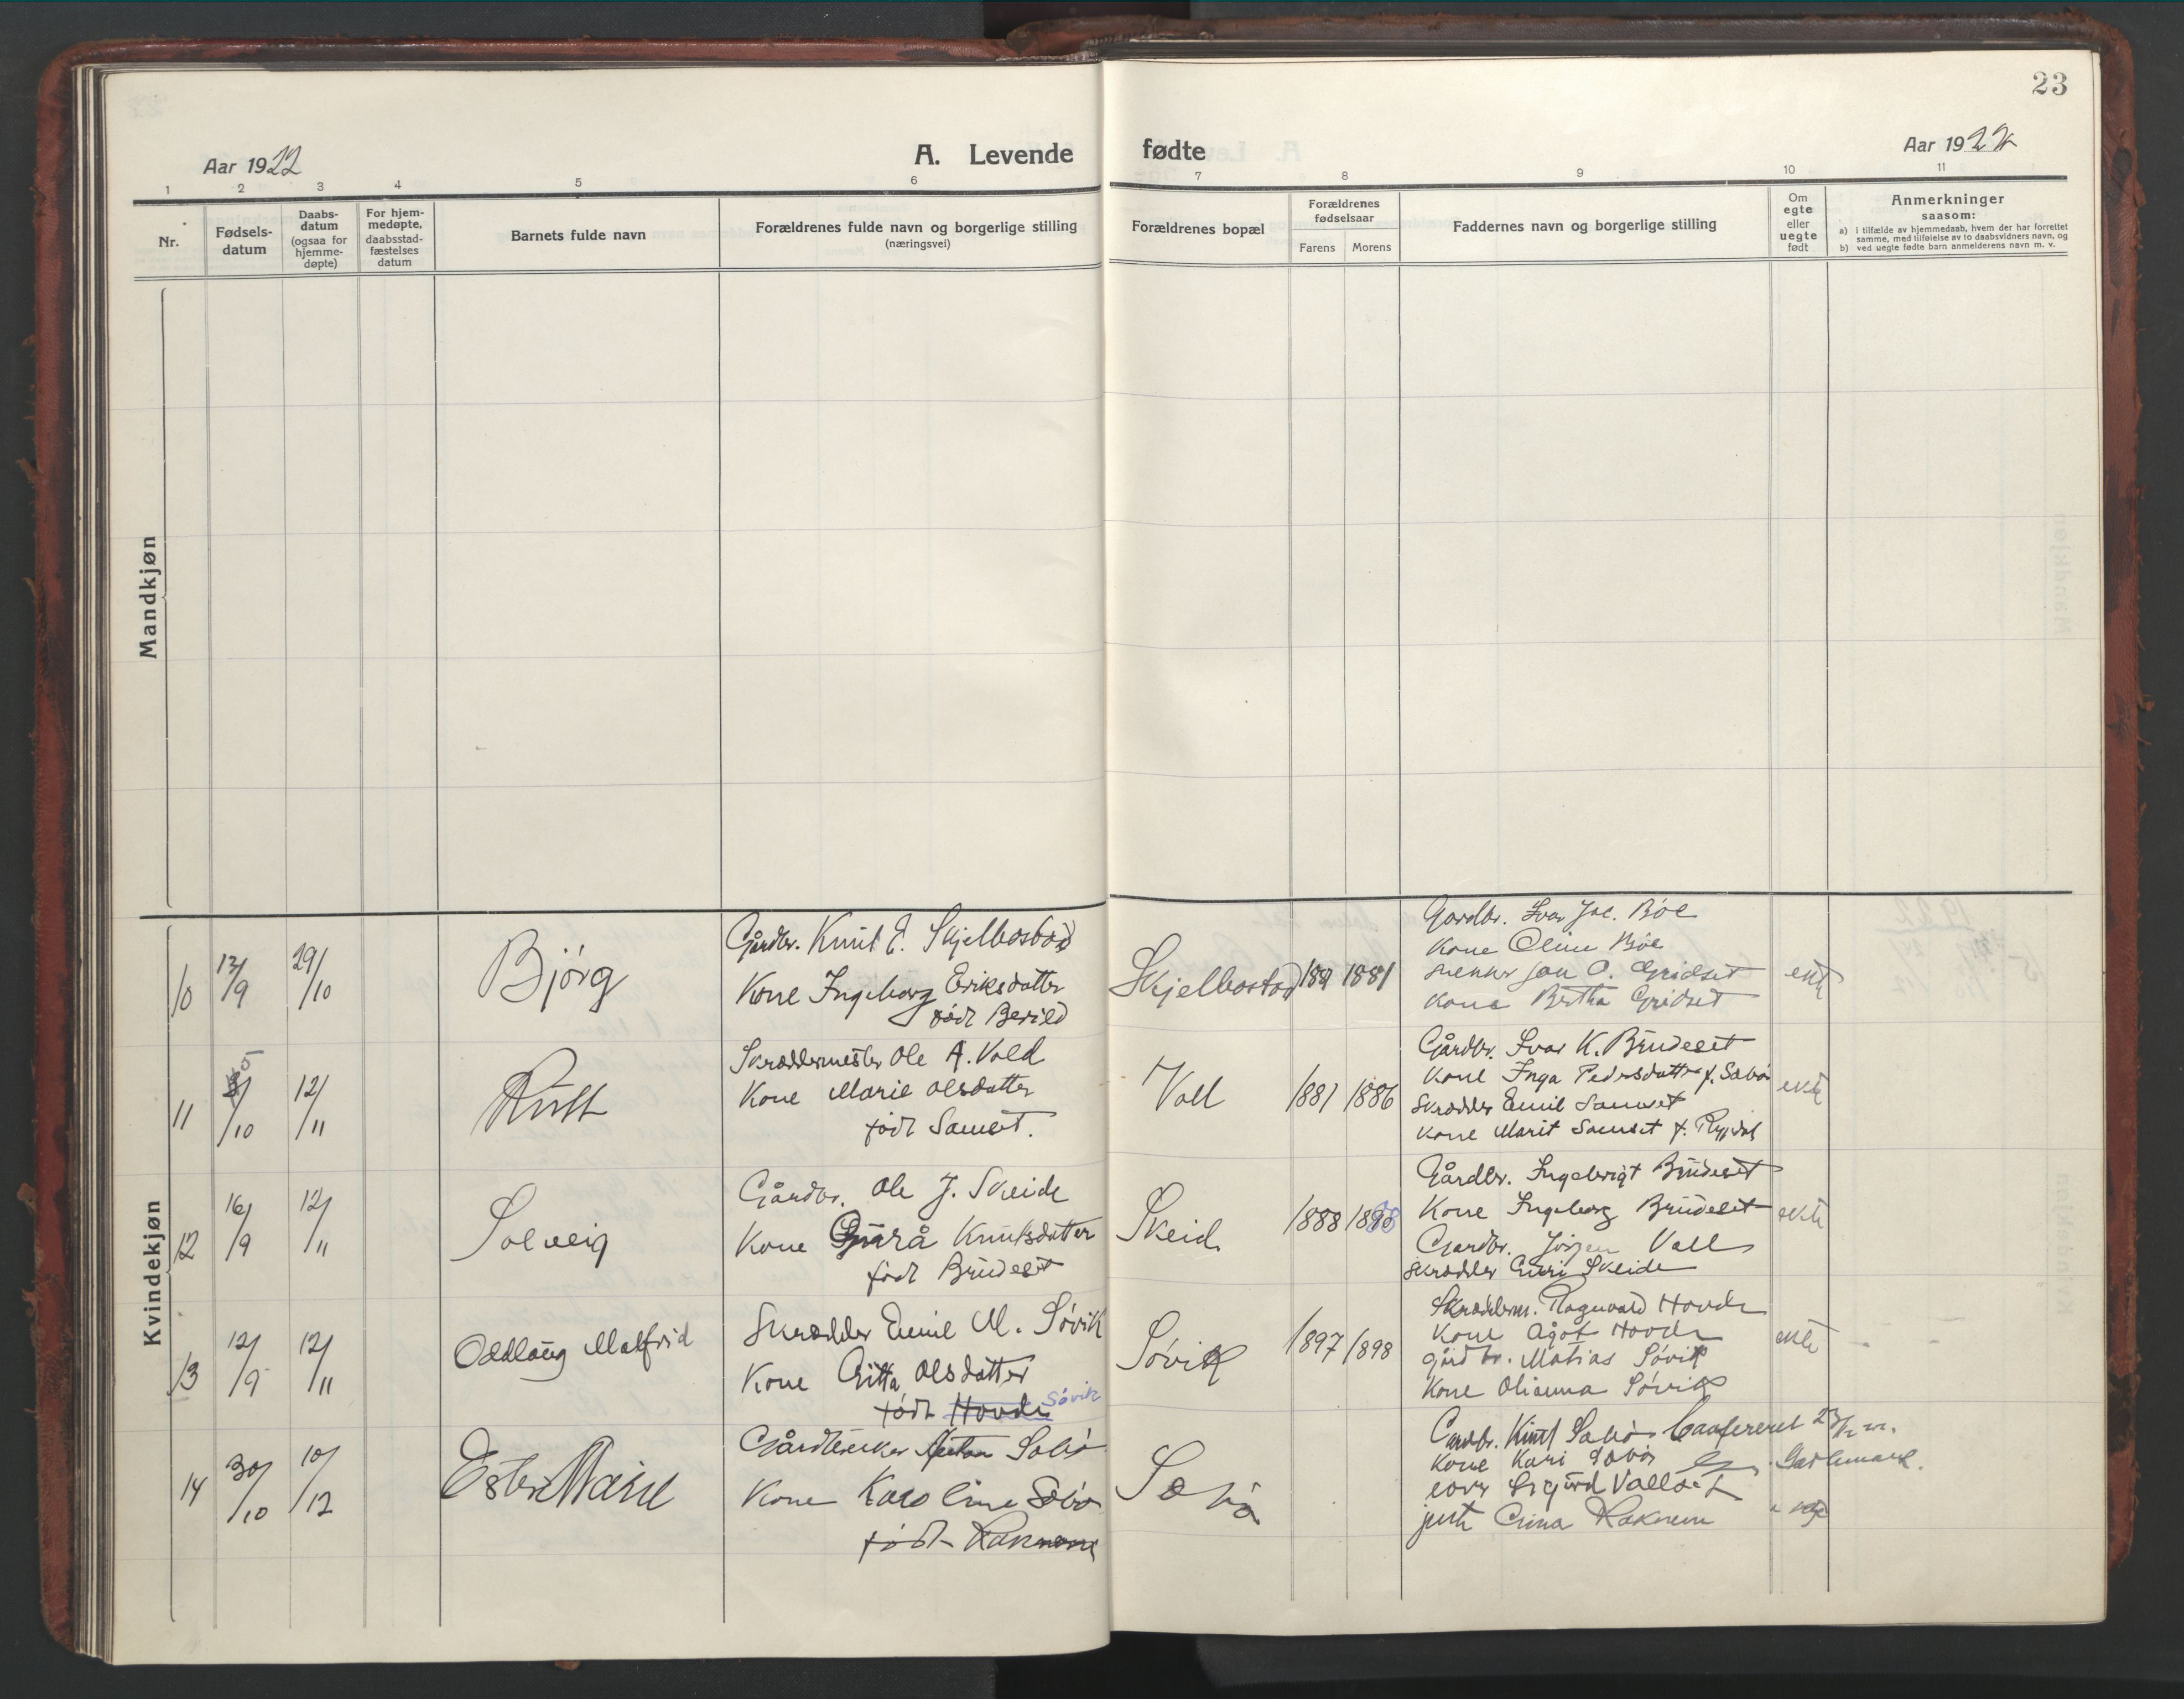 23
Aar 1922
A. Levende fødte
Aar 1922
1 2 3 4 5 6 7 8 9 10 11
Nr.
Fødsels-
datum
Daabs-
datum
(ogsaa for
hjemme-
døpte)
For hjem-
medøpte,
daabsstad-
fæstelses
datum
Barnets fulde navn
Forældrenes fulde navn og borgerlige stilling
(næringsvei)
Forældrenes bopæl
Forældrenes
fødselsaar
Farens Morens
Faddernes navn og borgerlige stilling
Om
egte
eller
uegte
født
Anmerkninger
saasom:
a) i tilfælde av hjemmedaab, hvem der har forrettet
samme, med tilføielse av to daabsvidners navn, og
b) ved uegte fødte barn anmelderens navn m. v.
Mandkjøn
Kvindekjøn
10
13/9
29/10
Bjørg
Gårdbr. Knut E. Skjelbostad
Kone Ingeborg Eriksdatter
født Berild
Skjelbostad
1881
Gardbr. Ivar Joe. Böe
Kone Oline Böe
Jon O. Gridset
Kone Bertha Gridset
ekte
11
5/10
12/11
Ruth
Skræddermester Ole A. Vold
Kone Marie Olsdatter
født Samset.
Voll
1881 1886
Gårdbr. Ivar K. Brudeset
Kone Inga Pedersdatter f. Sæbø
Skrædder Emil Samset
Kone Marit Samset f. Rypdal
ekte
12
16/9
12/11
Solveig
Gårdbr. Ole J. Skeide
Kone Gurå Knutsdatter
født Brudeset
Skeid
1888 1898
Gårdbr. Ingebrigt Brudeset
Kone Ingeborg Brudeset
Gardbr. Jörgen Voll
Skrædder Skeide
ekte
13
12/9
12/11
Oddlaug Malfrid
Skrædder Emil M. Søvik
Kone Gitta Olsdatter
født Hovde Søvik
Søvik
1897 1898
Skrædderm. Ragnvald Hovde
Kone Ågot Hovde
gårdbr. Matias Søvik
Kone Olianna Søvik
ekte
14
30/10
10/12
Ester Marie
Gårdbruker Anton Sæbø
Kone Karoline Sæbø
født Raknem
Sæbø
Gardbr. Knut Sæbø
Kone Kari Sæbø
Sigurd Vallset
Raknem